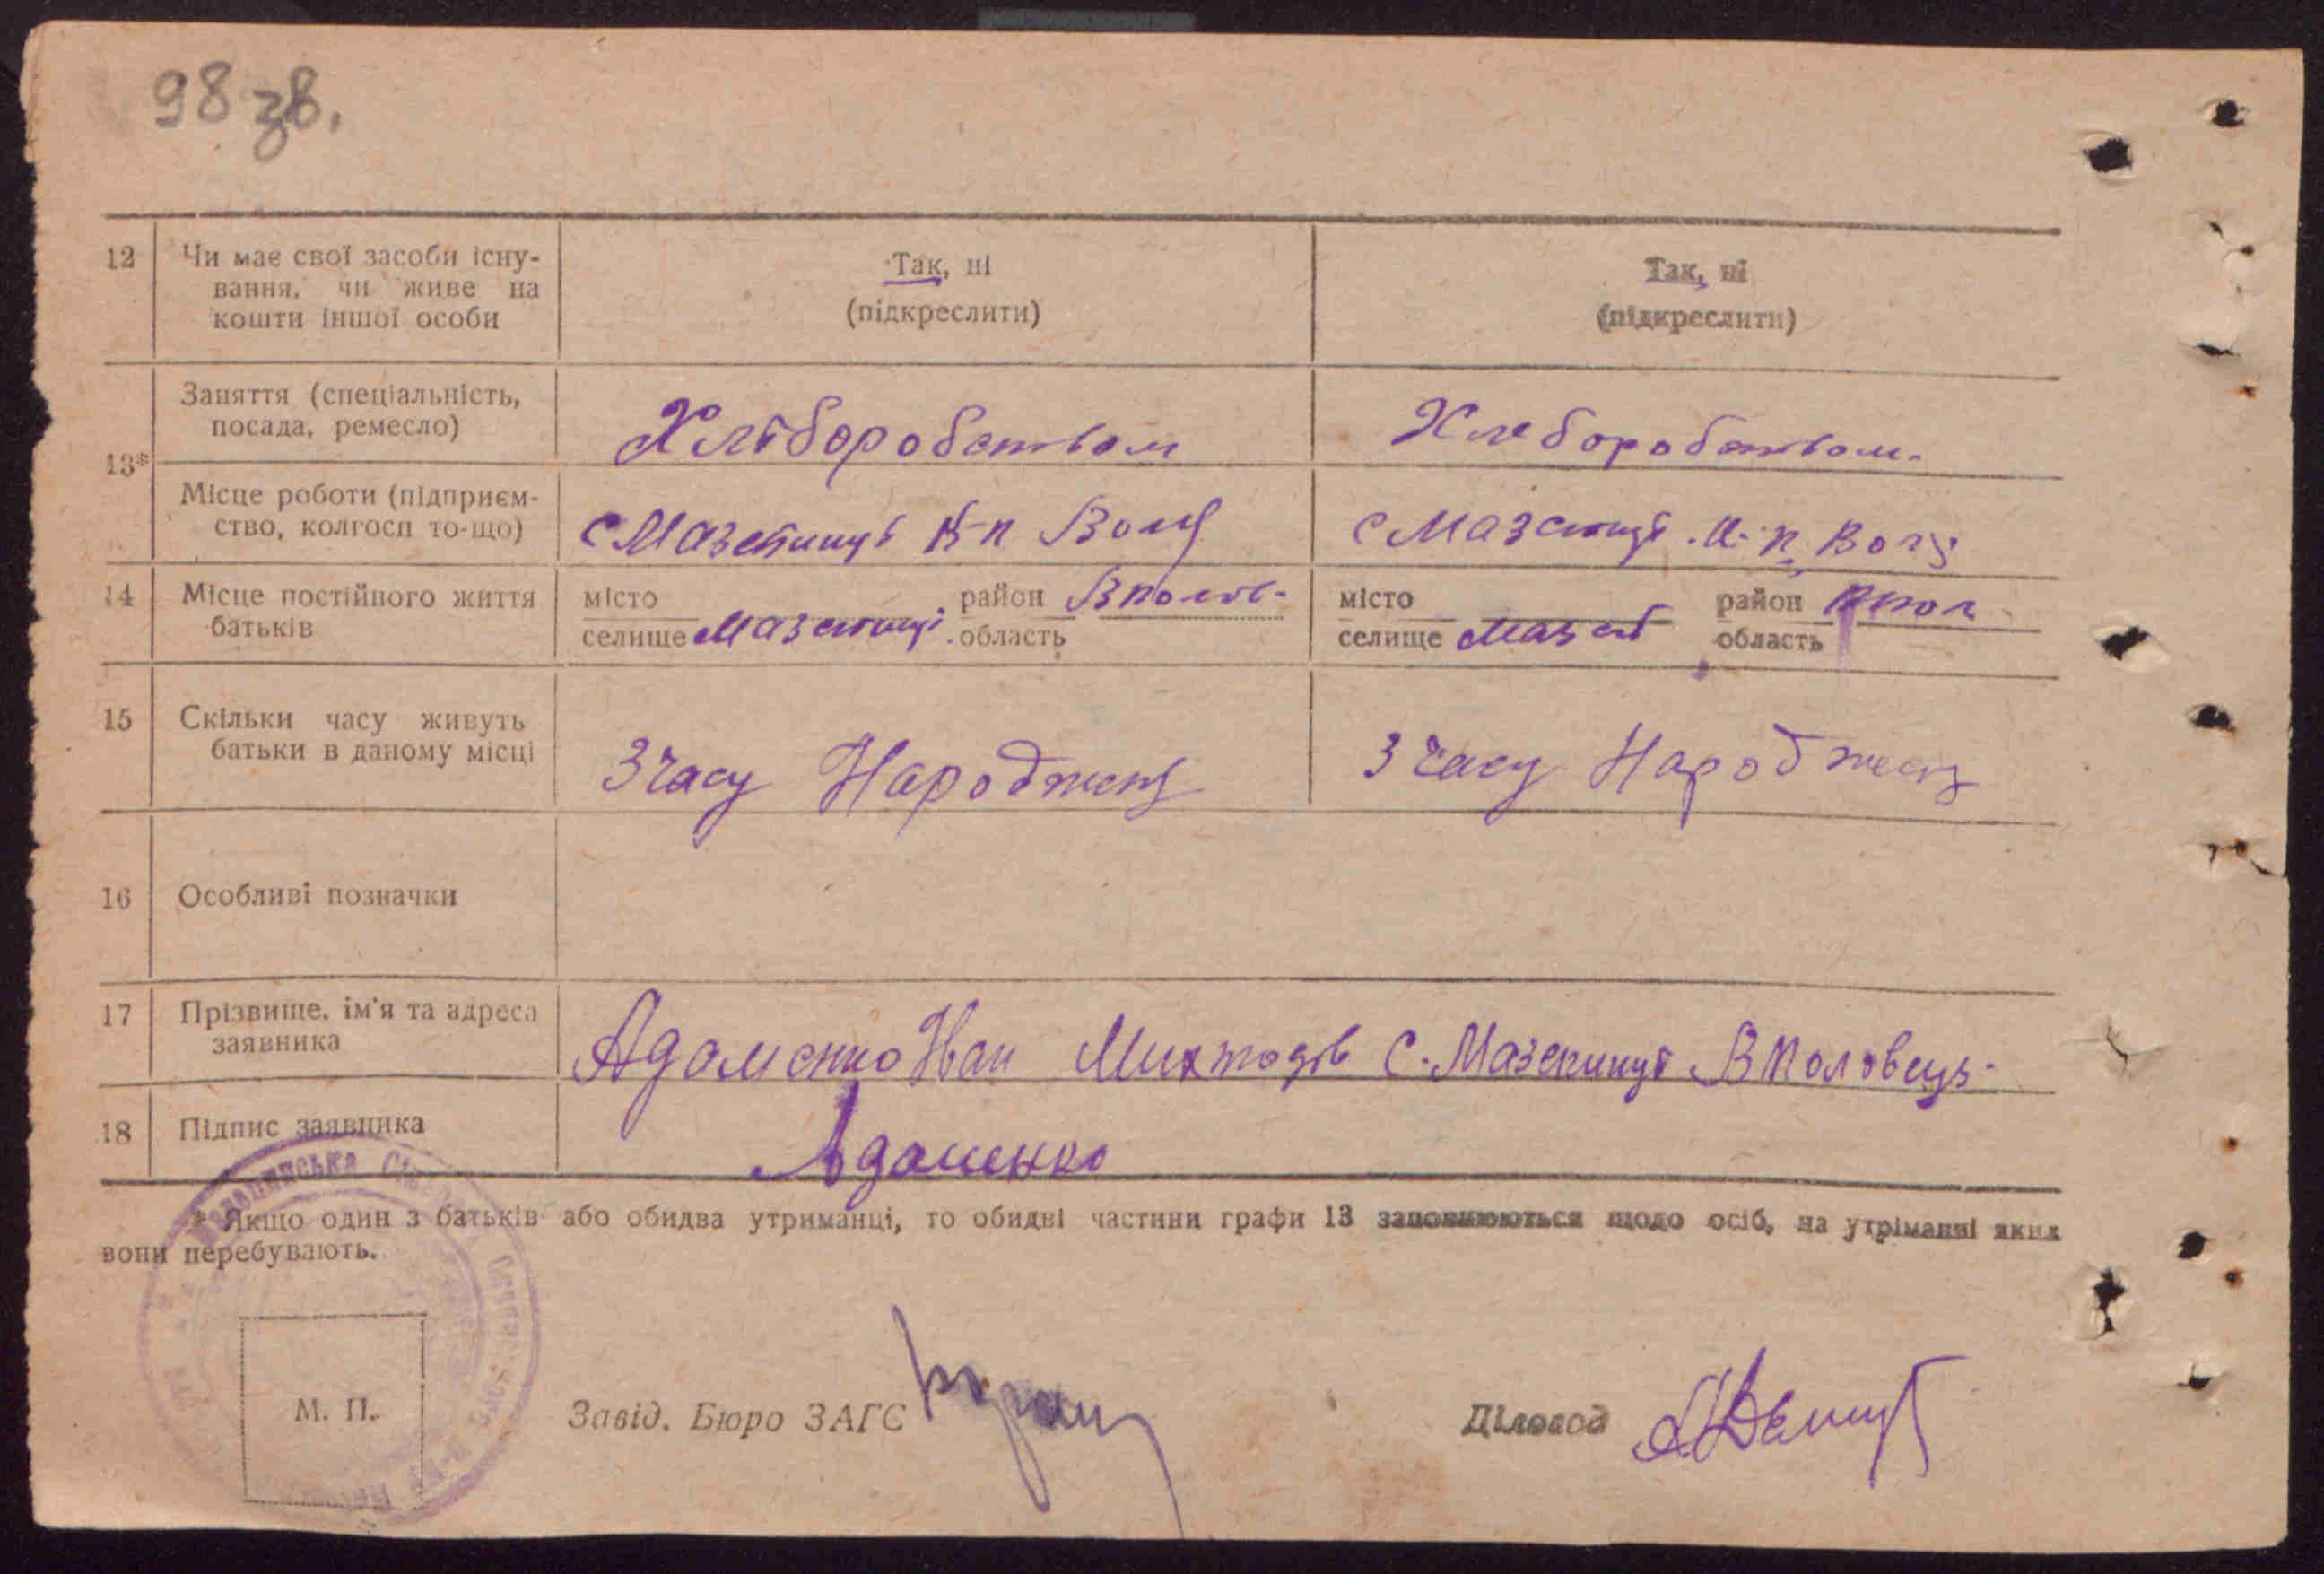 98 зв.
12 Чи має свої засоби існу- Так, ні Так, ні
вання, чи живе на (підкреслити) (підкреслити)
кошти іншої особи
13* Заняття (спеціальність, Хліборобством Хлеборобством.
посада, ремесло)
Місце роботи (підприєм- с Мазепинці К-п с Мазепинці
ство, колгосп то-що)
14 Місце постійного життя місто район місто район
батьків селище Мазепинці область селище Мазеп область
15 Скільки часу живуть З часу Народженя З часу Народженя
батьки в даному місці
16 Особливі позначки
17 Прізвище, ім'я та адреса Адаменко Іван с. Мазепинці В Половець-
заявника
18 Підпис заявника Адаменко
* Якщо один з батьків або обидва утриманці, то обидві частини графи 13 заповнюються щодо осіб, на утріманні яких
вони перебувають.
М. П. Завід. Бюро ЗАГС Діловод